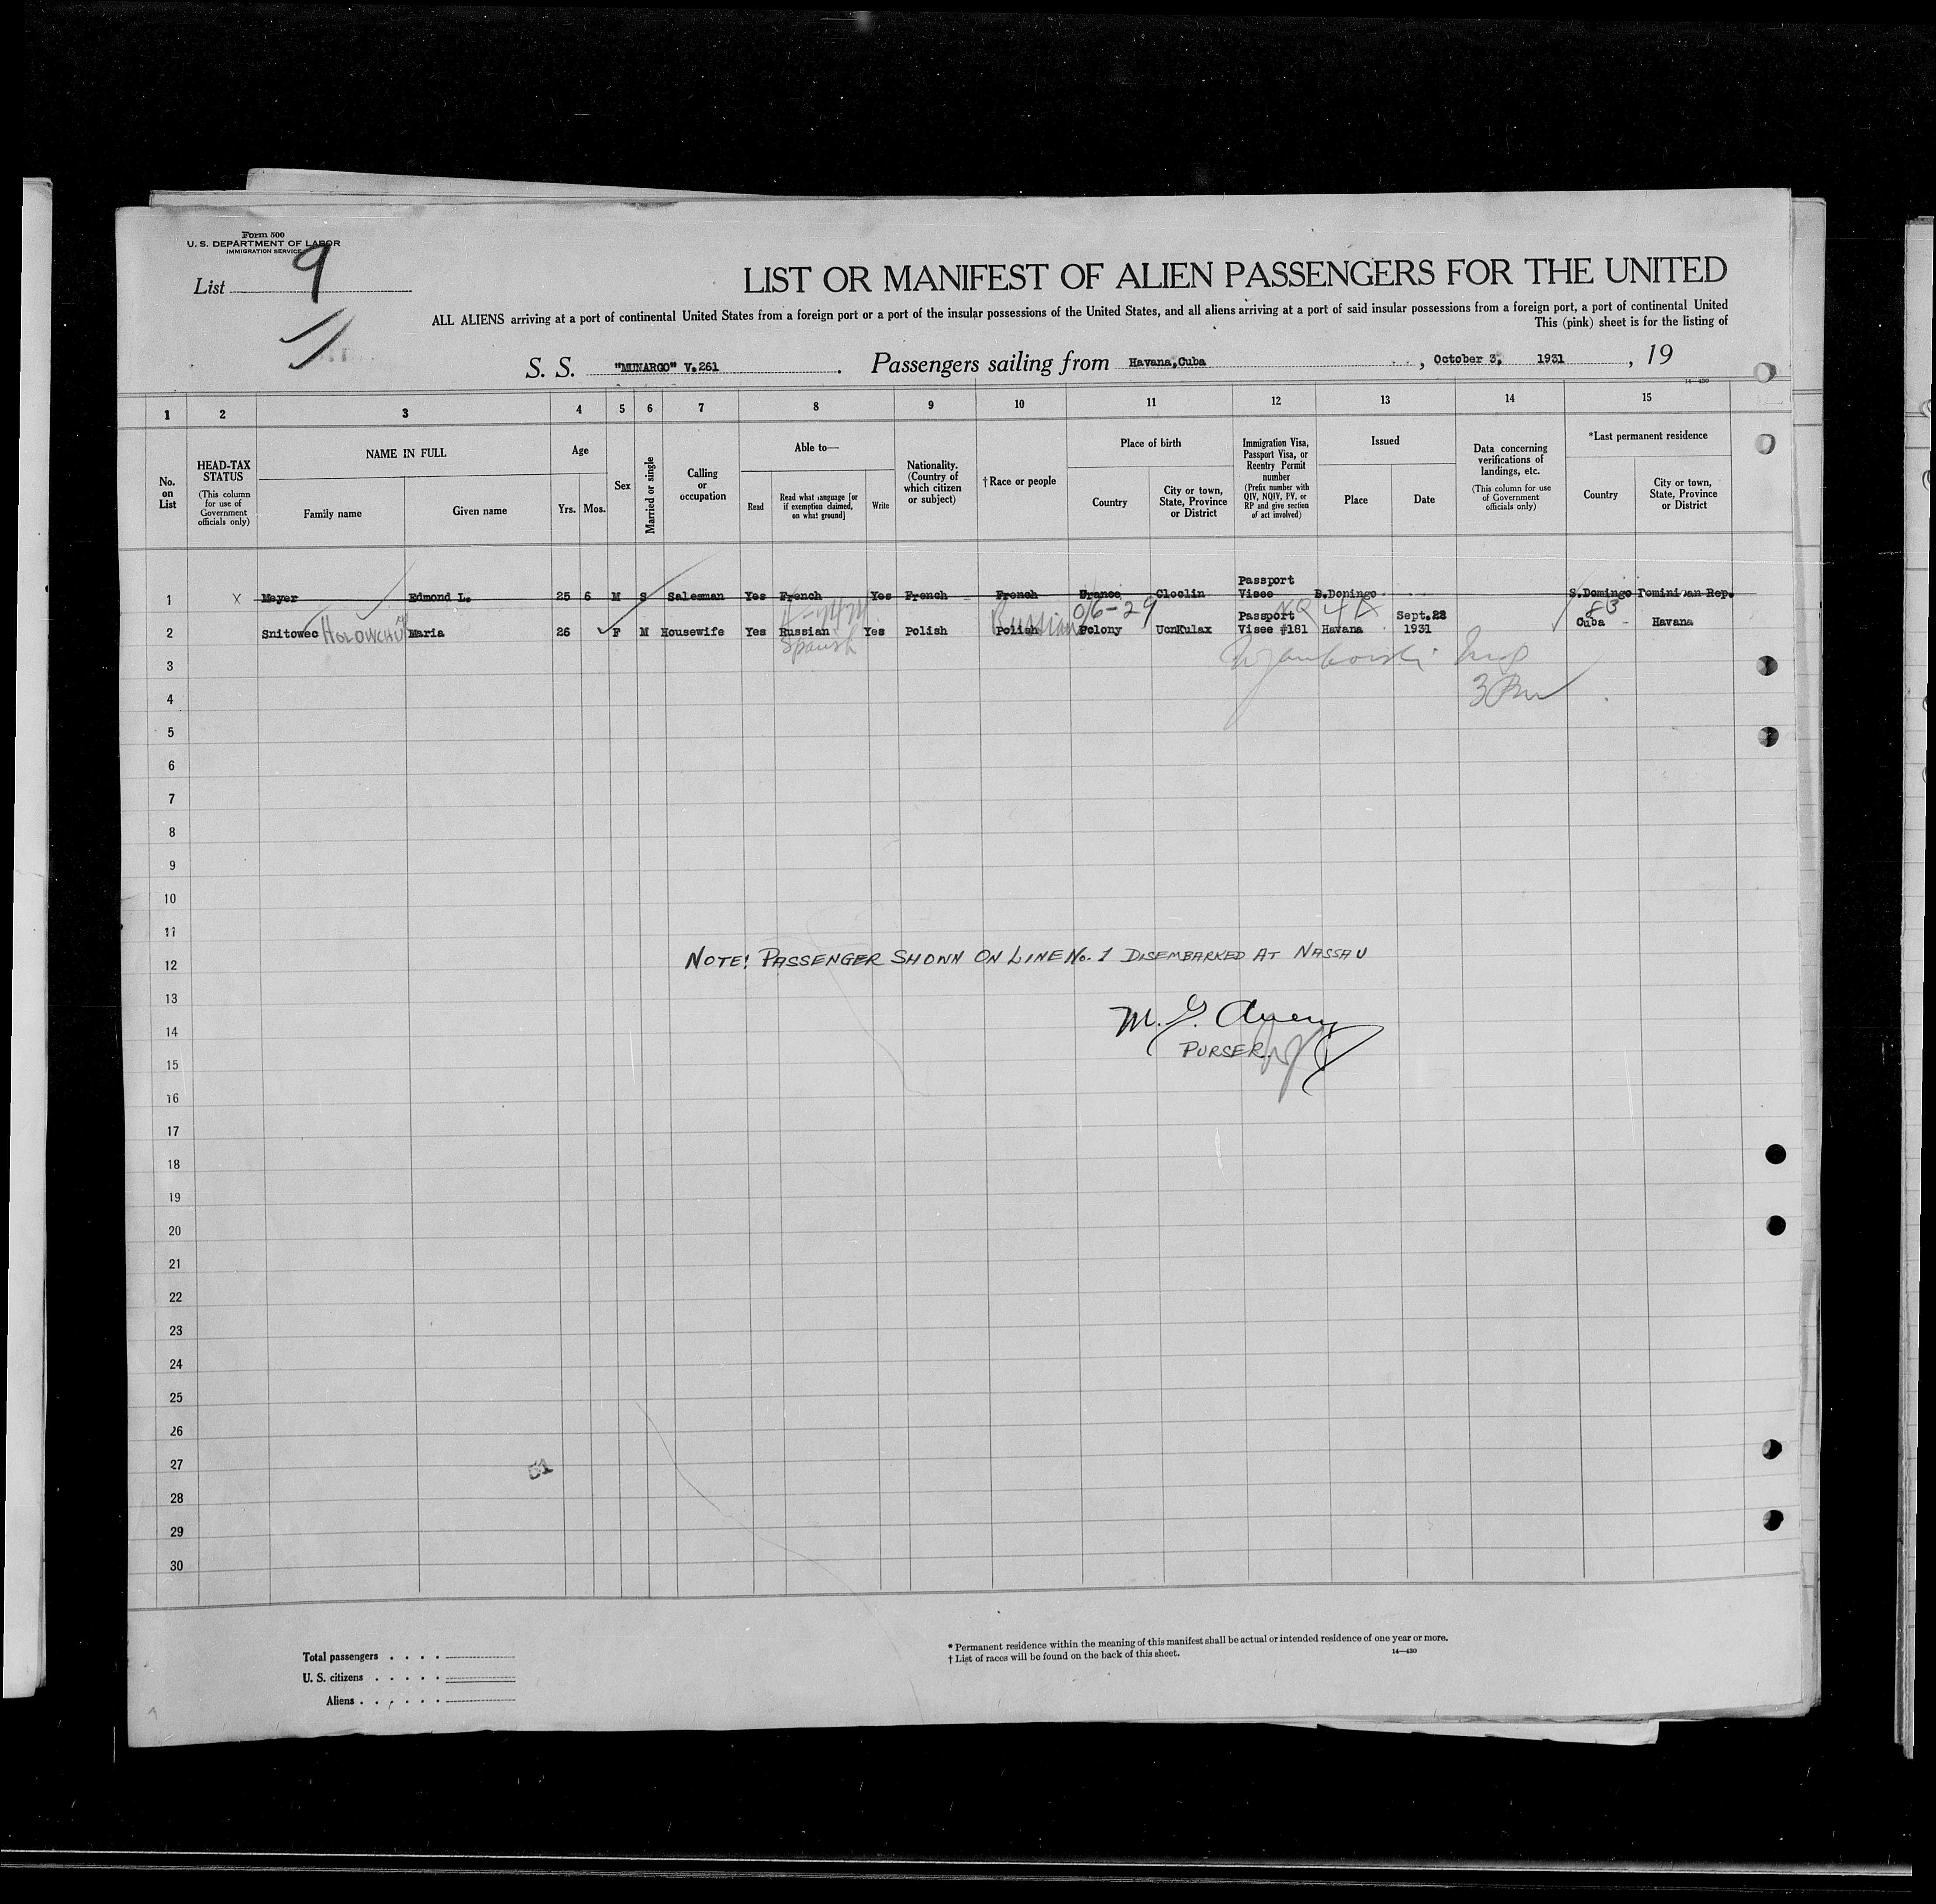 Form 500
U. S. DEPARTMENT OF LABOR
IMMIGRATION SERVICE
List 9
LIST OR MANIFEST OF ALIEN PASSENGERS FOR THE UNITED
ALL ALIENS arriving at a port of continental United States from a foreign port or a port of the insular possessions of the United States, and all aliens arriving at a port of said insular possessions from a foreign port, a port of continental United
This (pink) sheet is for the listing of
S. S. "MUNARGO" V.261 . Passengers sailing from Havana,Cuba , October 3, 1931 , 19
14—430
1 2 3 4 5 6 7 8 9 10 11 12 13 14 15
No. on List
HEAD-TAX STATUS
(This column for use of Government officials only)
NAME IN FULL
Family name
Given name
Age
Yrs. Mos.
Sex
Married or single
Calling or occupation
Able to—
Read
Read what language [or if exemption claimed, on what ground]
Write
Nationality. (Country of which citizen or subject)
†Race or people
Place of birth
Country
City or town, State, Province or District
Immigration Visa, Passport Visa, or Reentry Permit number
(Prefix number with QIV, NQIV, PV, or RP and give section of act involved)
Issued
Place
Date
Data concerning verifications of landings, etc.
(This column for use of Government officials only)
*Last permanent residence
Country
City or town, State, Province or District
1 X Meyer Edmond L. 25 6 M S Salesman Yes French Yes French French Cloclin Passport Visee S.Domingo
2 Snitowec Maria 26 F M Housewife Yes Russian Yes Polish Polish Polony UonKulax Passport Visee #181 Havana Sept.22 1931 Cuba - Havana
Spanish
Russian
06-29
3
4
5
6
7
8
9
10
11
12
NOTE! PASSENGER SHOWN ON LINE No. 1 DISEMBARKED AT NASSAU
13
14
M. G. Avery
15
PURSER.
16
17
18
19
20
21
22
23
24
25
26
27
51
28
29
30
Total passengers . . . .
U. S. citizens . . . . .
Aliens . . . . . .
* Permanent residence within the meaning of this manifest shall be actual or intended residence of one year or more.
† List of races will be found on the back of this sheet.
14—430